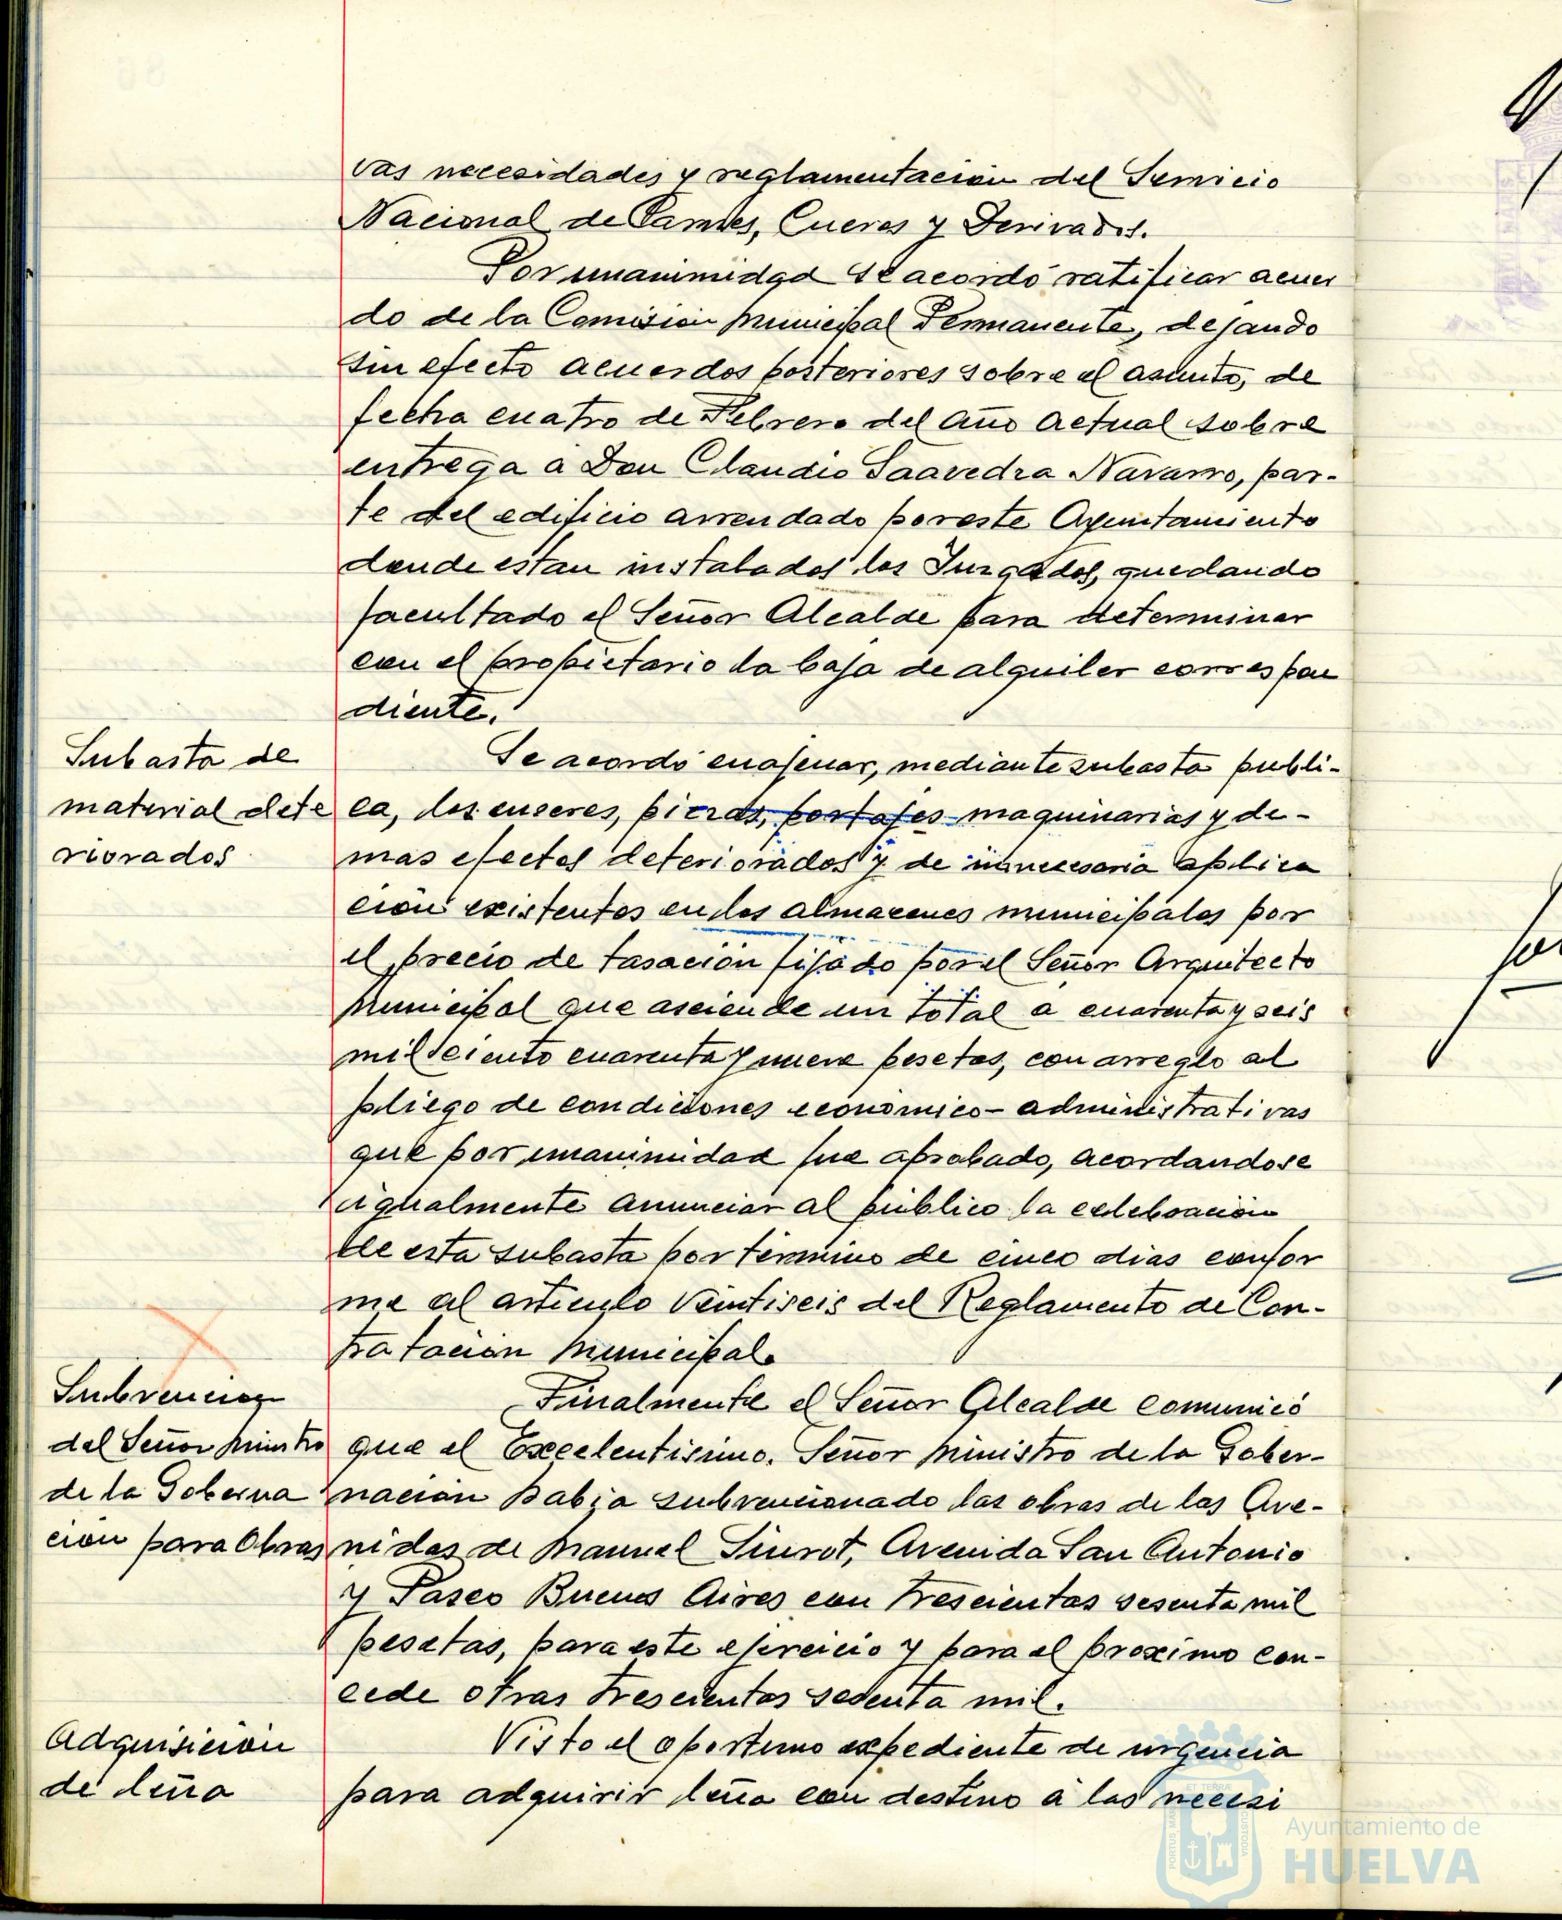 vas necesidades y reglamentación del Servicio
Nacional de Carnes, Cueros y Derivados.
Por unanimidad se acordó ratificar acuer
do de la Comisión Municipal Permanente, dejando
sin efecto acuerdos posteriores sobre el asunto, de
fecha cuatro de Febrero del año actual sobre
entrega a Don Claudio Saavedra Navarro, par-
te del edificio arrendado por este Ayuntamiento
donde estan instalados los Juzgados, quedando
facultado el Señor Alcalde para determinar
con el propietario la baja de alquiler correspon
diente.
Subasta de
material dete
riorados
Se acordó enajenar, mediante subasta publi-
ca, los enseres, piezas, portajes maquinarias y de-
mas efectos deteriorados y de innecesaria aplica
ción existentes en los almacenes municipales por
el precio de tasación fijado por el Señor Arquitecto
Municipal que asciende un total a cuarenta y seis
mil ciento cuarenta y nueve pesetas, con arreglo al
pliego de condiciones económico-administrativas
que por unanimidad fue aprobado, acordandose
igualmente anunciar al público la celebración
de esta subasta por término de cinco dias confor
me al artículo Veintiseis del Reglamento de Con-
tratación Municipal.
Subvencion
del Señor Ministro
de la Goberna
ción para Obras
Finalmente el Señor Alcalde comunicó
que el Excelentisimo. Señor Ministro de la Gober-
nación había subvencionado las obras de las Ave-
nidas de Manuel Siurot, Avenida San Antonio
y Paseo Buenos Aires con trescientas sesenta mil
pesetas, para este ejercicio y para el proximo con-
cede otras trescientas sesenta mil.
Adquisición
de leña
Visto el oportuno expediente de urgencia
para adquirir leña con destino á las necesi
Ayuntamiento de
HUELVA